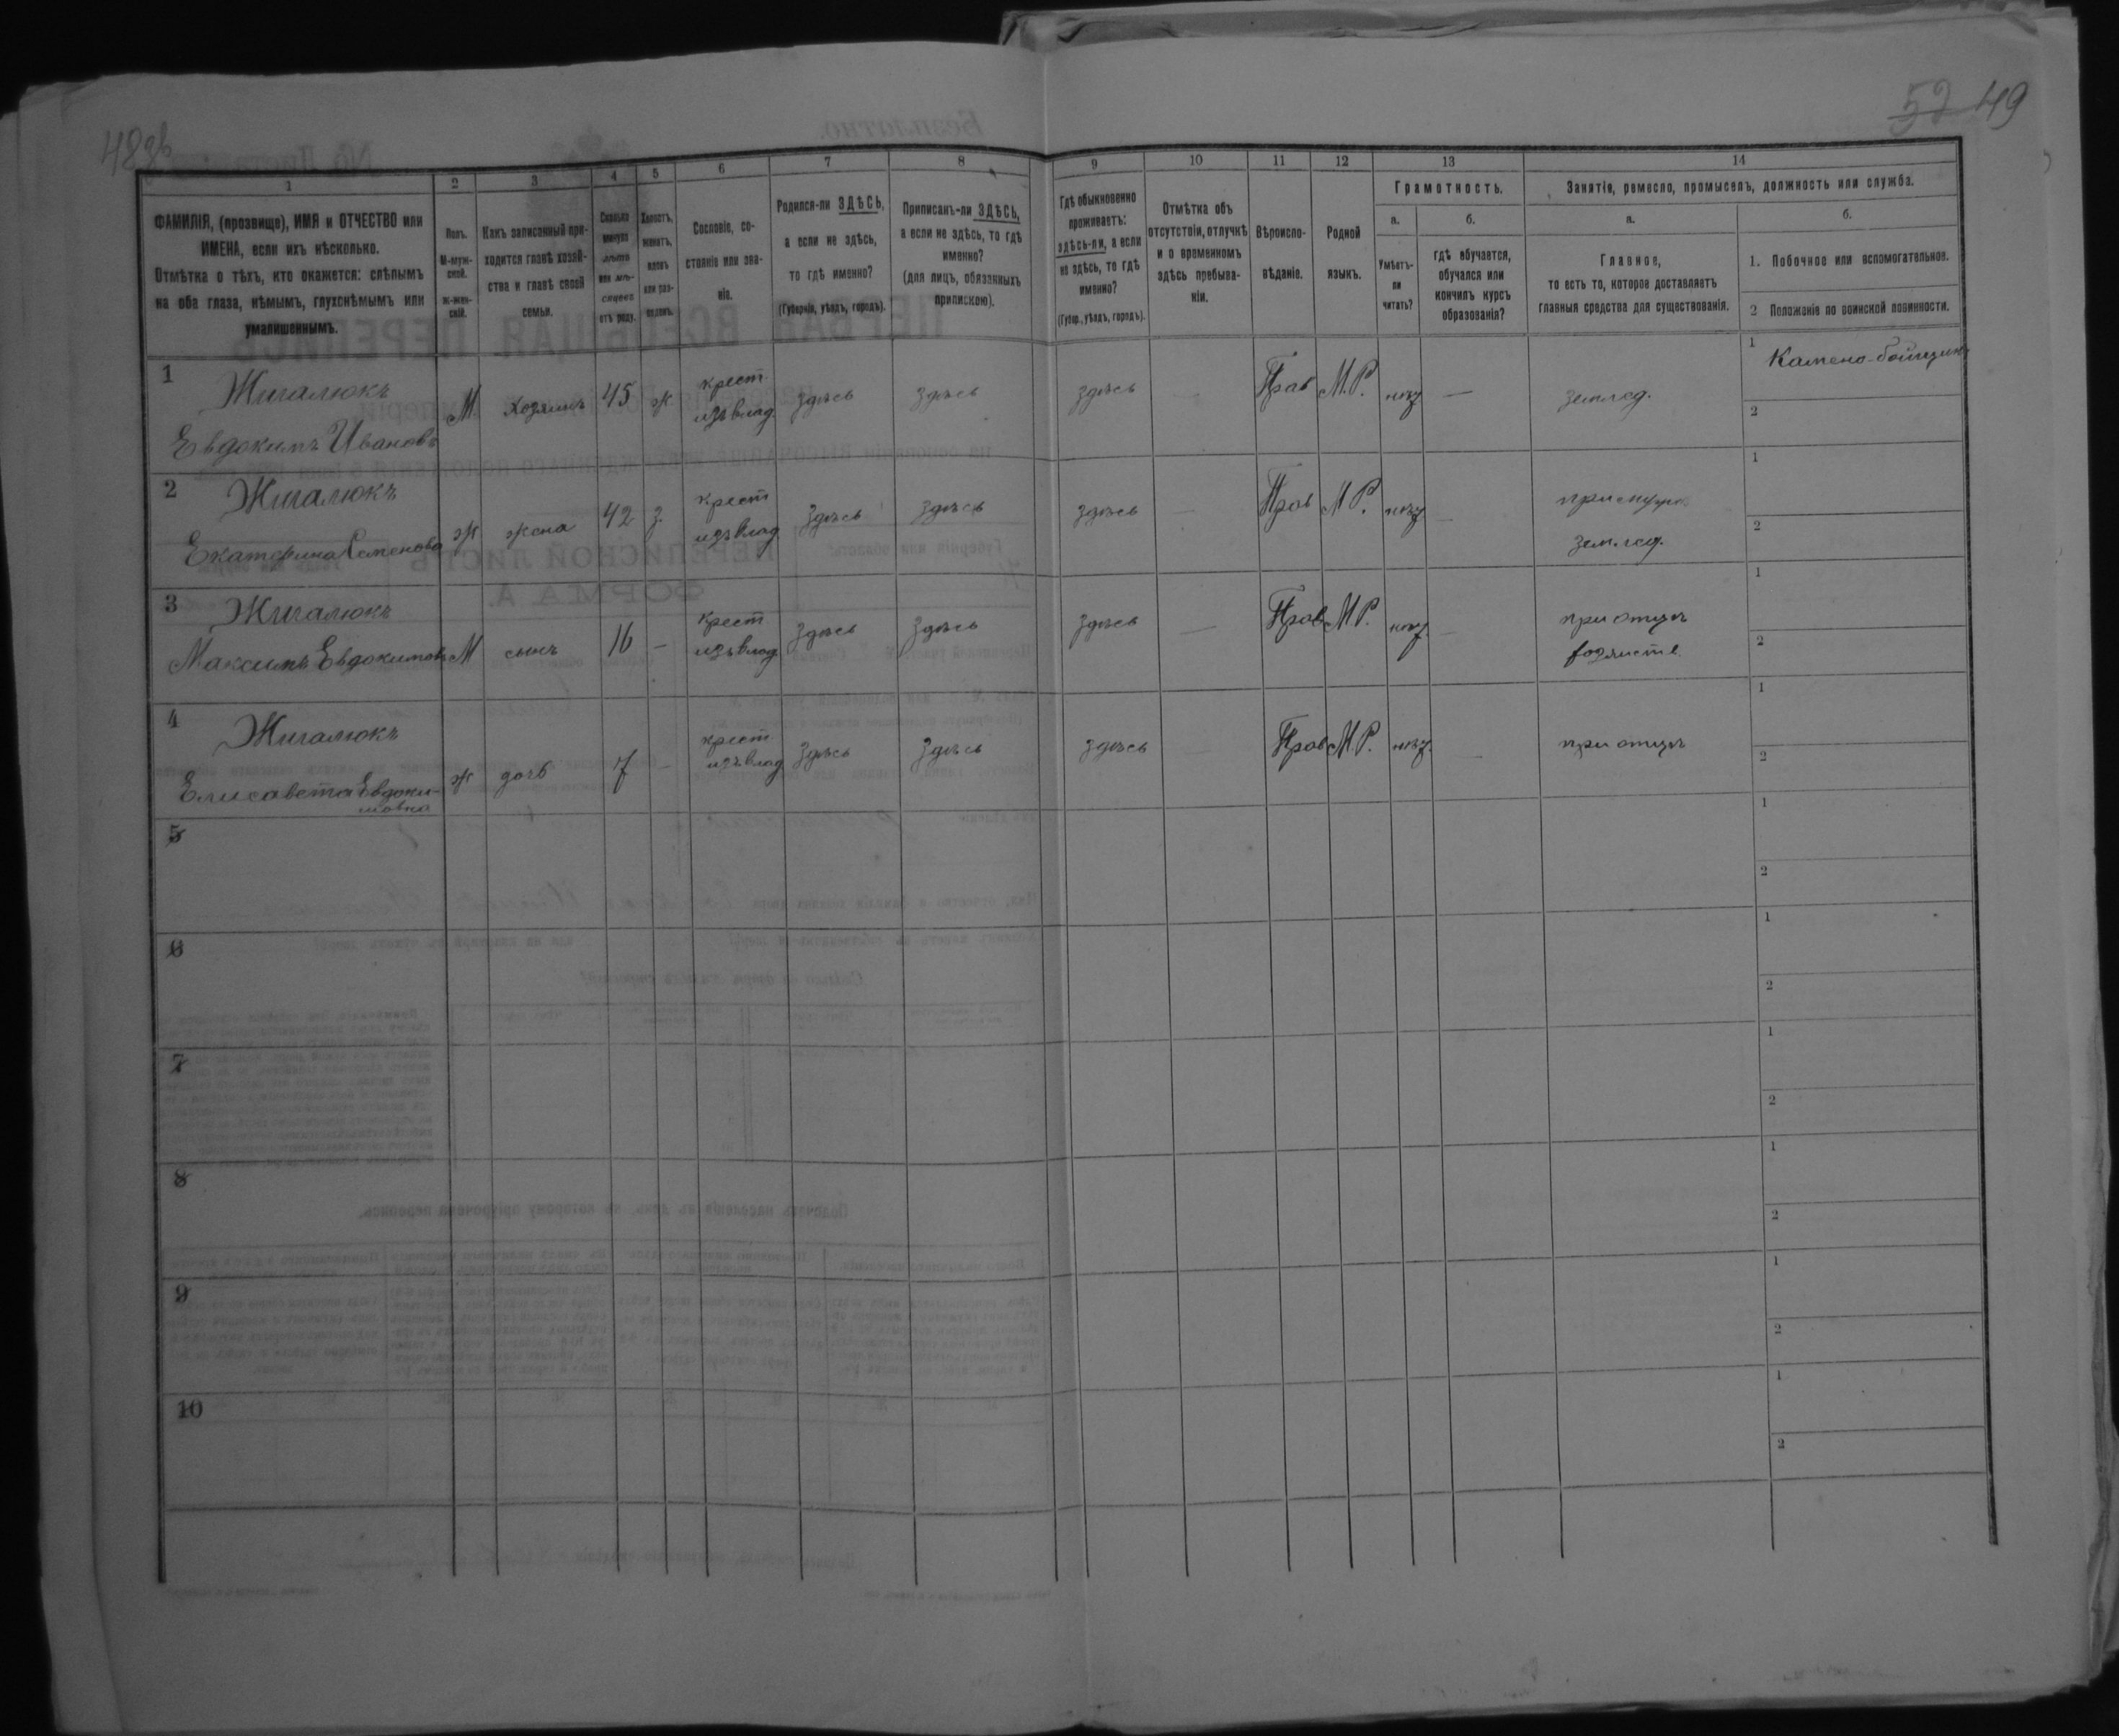 48об
52 49
1 2 3 4 5 6 7 8 9 10 11 12 13 14
ФАМИЛІЯ, (прозвище), ИМЯ и ОТЧЕСТВО или
ИМЕНА, если ихъ нѣсколько.
Отмѣтка о тѣхъ, кто окажется: слѣпымъ
на оба глаза, нѣмымъ, глухонѣмымъ или
умалишеннымъ.
Полъ.
М-муж-
ской.
ж-жен-
скій.
Какъ записанный при-
ходится главѣ хозяй-
ства и главѣ своей
семьи.
Сколько
минуло
лѣтъ
или мѣ-
сяцевъ
отъ роду.
Холостъ,
женатъ,
вдовъ
или раз-
веденъ.
Сословіе, со-
стояніе или зва-
ніе.
Родился-ли ЗДѢСЬ,
а если не здѣсь,
то гдѣ именно?
(Губернія, уѣздъ, городъ).
Приписанъ-ли ЗДѢСЬ,
а если не здѣсь, то гдѣ
именно?
(для лицъ, обязанныхъ
припискою).
Гдѣ обыкновенно
проживаетъ:
здѣсь-ли, а если
не здѣсь, то гдѣ
именно?
(Губер., уѣздъ, городъ).
Отмѣтка объ
отсутствіи, отлучкѣ
и о временномъ
здѣсь пребыва-
ніи.
Вѣроиспо-
вѣданіе.
Родной
языкъ.
Грамотность.
а.
Умѣетъ-
ли
читать?
б.
гдѣ обучается,
обучался или
кончилъ курсъ
образованія?
Занятіе, ремесло, промыселъ, должность или служба.
а.
Главное,
то есть то, которое доставляетъ
главныя средства для существованія.
б.
1. Побочное или вспомогательное.
2 Положеніе по воинской повинности.
1 Жигалюкъ
Евдокимъ Ивановъ
М Хозяинъ 45 ж крест
изъ влад. здѣсь здѣсь здѣсь — Прав М.Р. нѣтъ — землед.
1 Камено-бойщикъ
2
2 Жигалюкъ
Екатерина Семенова
ж жена 42 з. крест
изъ влад здѣсь здѣсь здѣсь — Прав М.Р. нѣтъ —
землед.
1
2
3 Жигалюкъ
Максимъ Евдокимовъ
М сынъ 16 — крест
изъ влад здѣсь здѣсь здѣсь — Прав М.Р. нѣтъ — при отцѣ
1
2
4 Жигалюкъ
Елисавета Евдоки-
мовна
ж дочь 7 — крест
изъ влад здѣсь здѣсь здѣсь — Прав М.Р. нѣтъ — при отцѣ
1
2
5
1
2
6
1
2
7
1
2
8
1
2
9
1
2
10
1
2